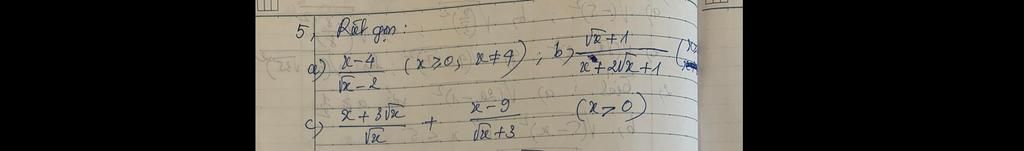 5, Rút gọn:
a) \frac{x-4}{\sqrt{x}-2} (x ≥ 0, x ≠ 4) ; b, \frac{\sqrt{x}+1}{x+2\sqrt{x}+1}
c, \frac{x+3\sqrt{x}}{\sqrt{x}} + \frac{x-9}{\sqrt{x}+3} (x ≥ 0)